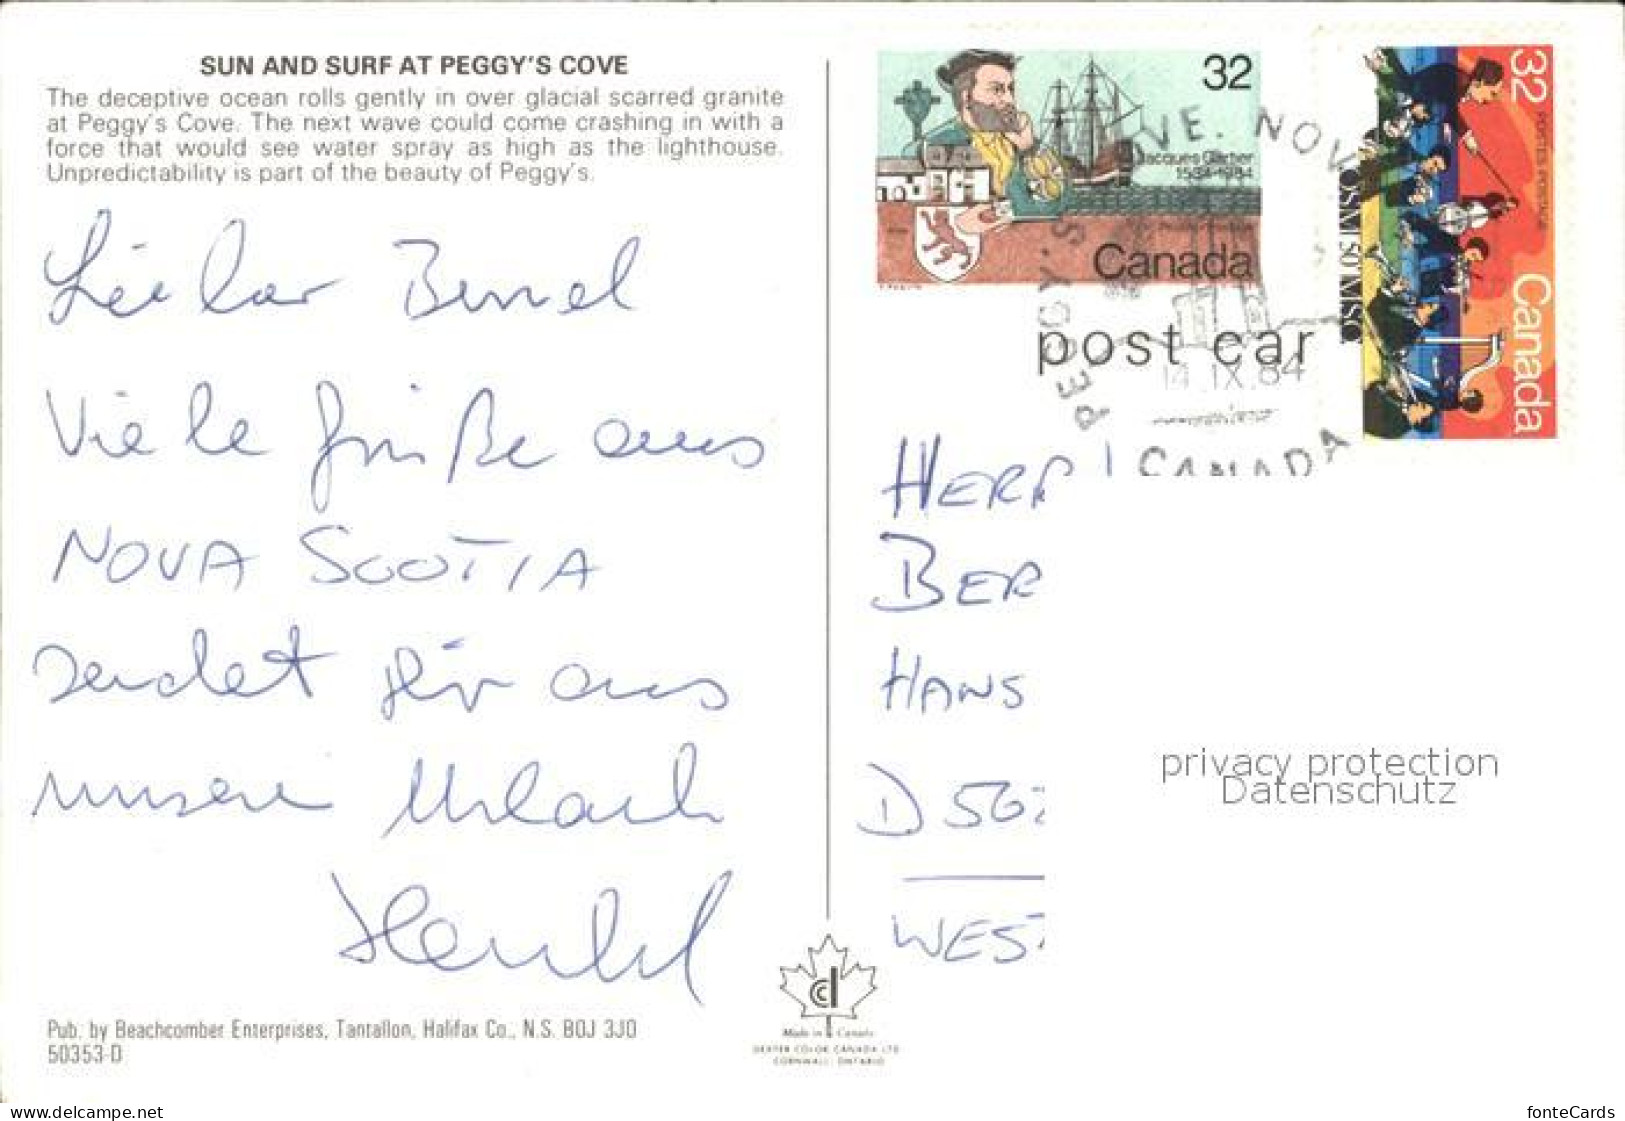 SUN AND SURF AT PEGGY'S COVE
The deceptive ocean rolls gently in over glacial scarred granite
at Peggy's Cove. The next wave could come crashing in with a
force that would see water spray as high as the lighthouse.
Unpredictability is part of the beauty of Peggy's.
Viele Grüße aus
NOVA SCOTIA
sendet Dir aus
unserem Urlaub
Pub. by Beachcomber Enterprises, Tantallon, Halifax Co., N.S. B0J 3J0
50353-D
Made in Canada
DEXTER COLOR CANADA LTD
CORNWALL, ONTARIO
32
Jacques Cartier
1534-1984
Canada
32
POSTES POSTAGE
OSM SO MSO
Canada
PEGGY'S COVE. NOV
14.IX.84
CANADA
post car
HERR
BER
HANS
D 50
WEST
privacy protection
Datenschutz
www.delcampe.net
fonteCards